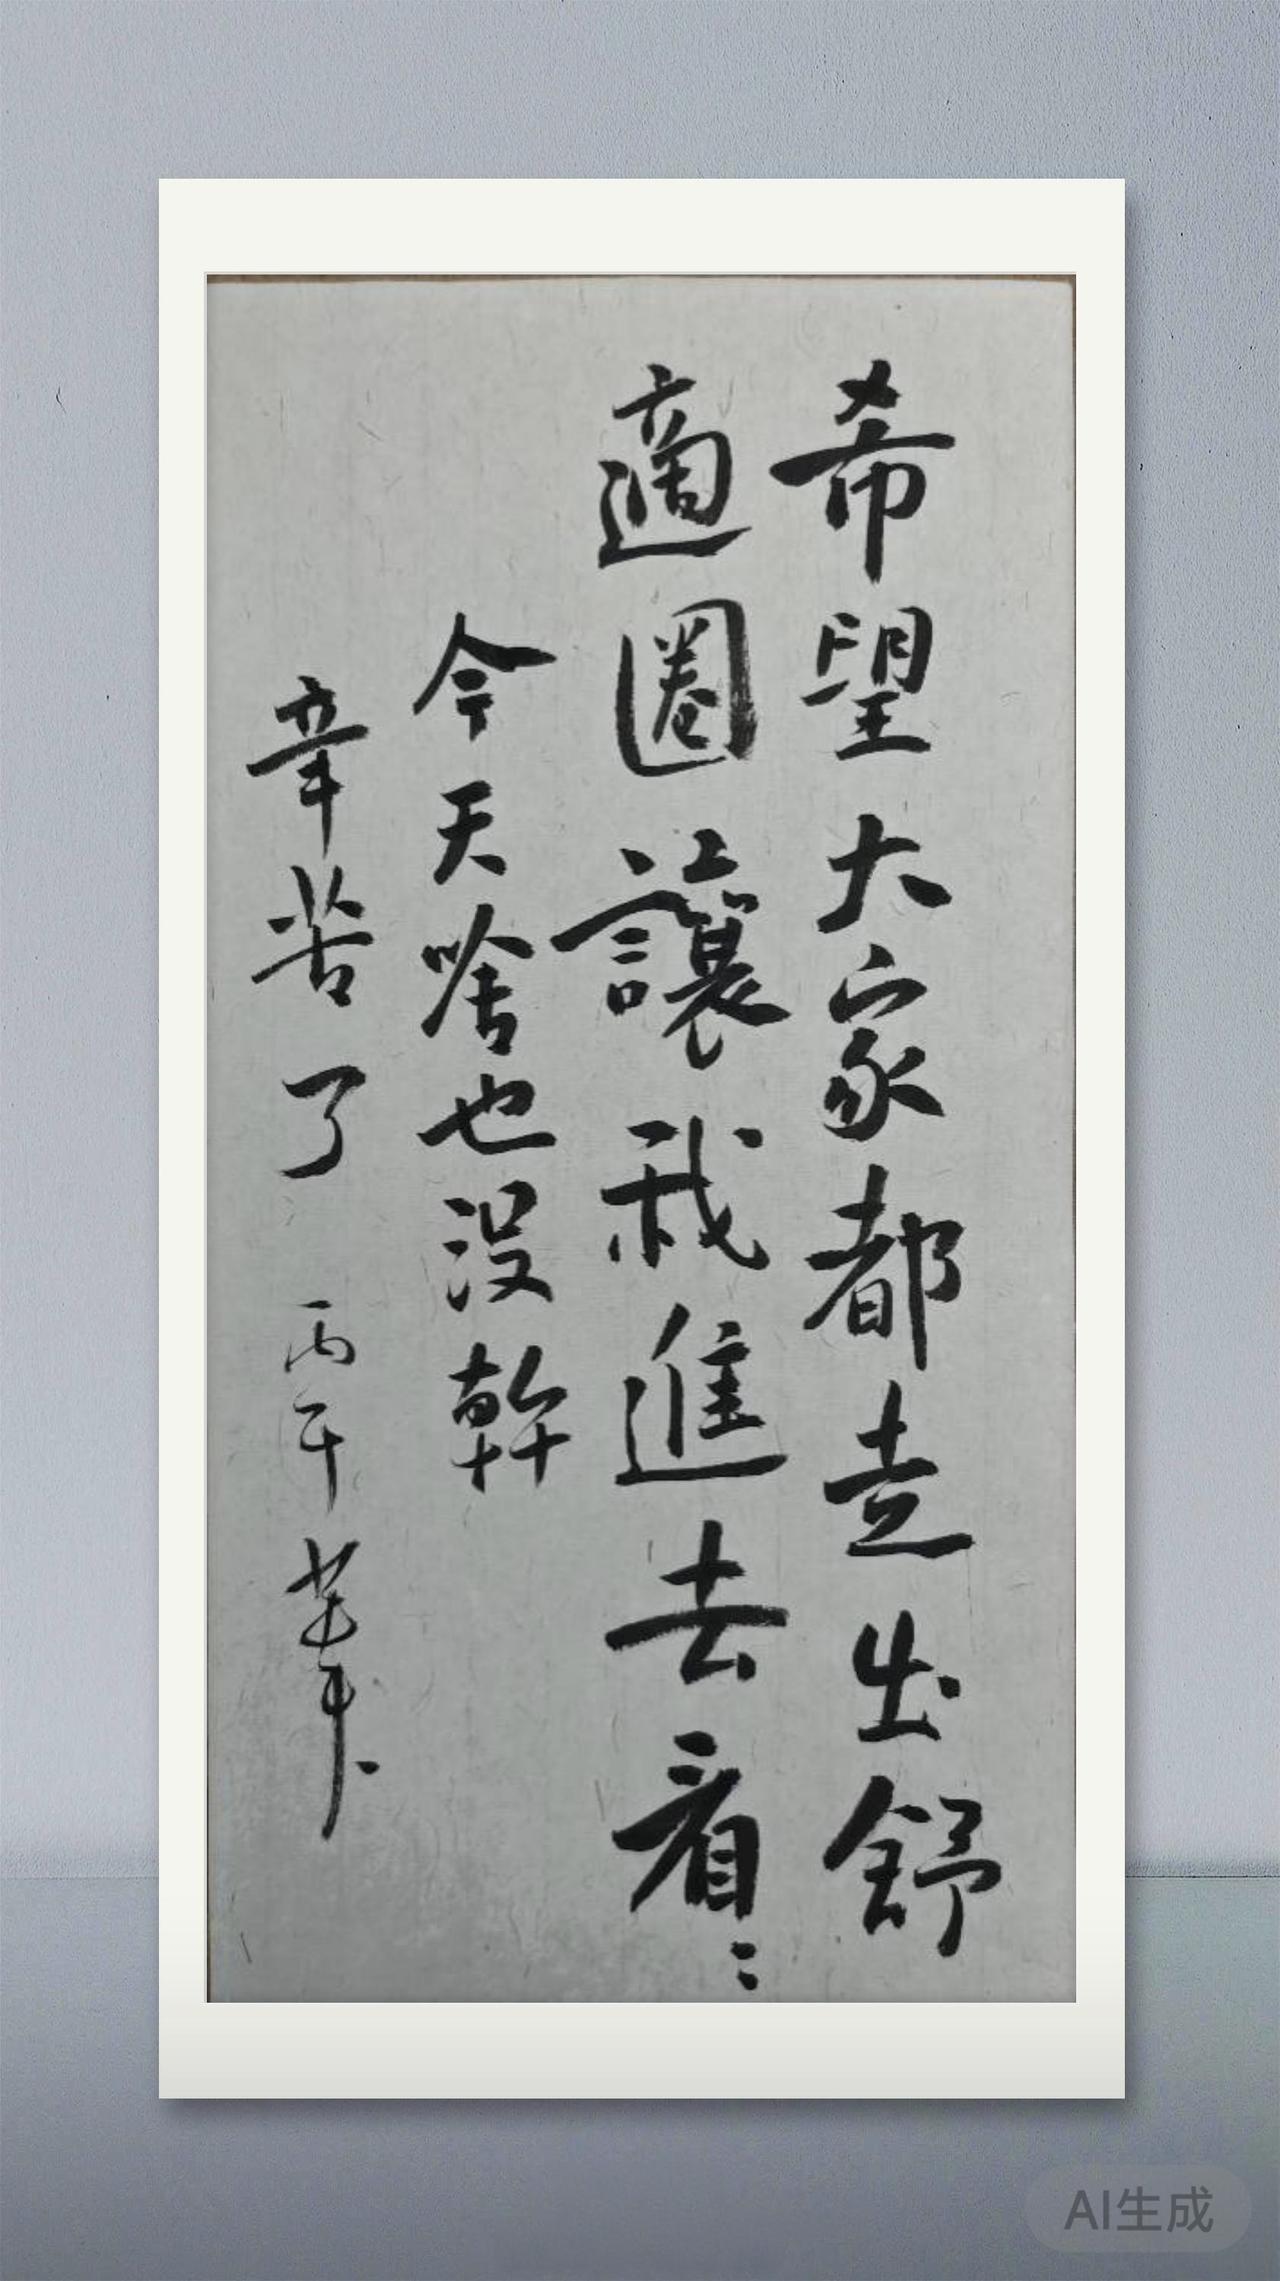 希望大家都走出舒
適圈讓我進去看〻
今天啥也沒幹
辛苦了 丙午
AI生成